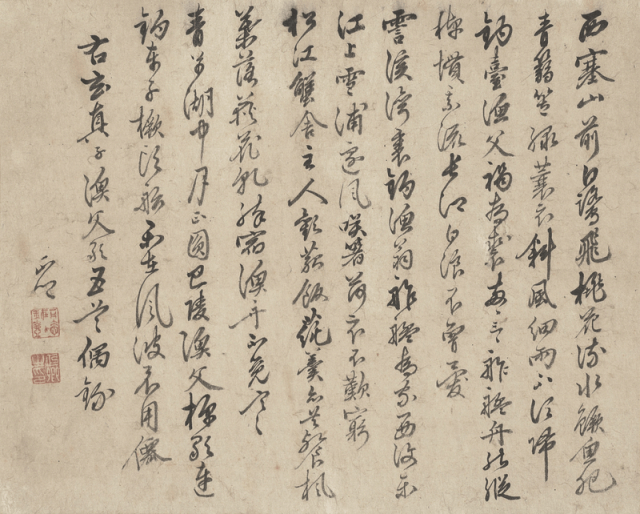 西塞山前白鷺飛桃花流水鱖魚肥
青蒻笠綠蓑衣斜風細雨不須歸
釣臺漁父褐為裘兩〻三〻舴艋舟能縱
棹慣乘流長江白浪不曾憂
霅溪灣裏釣漁翁舴艋為家西復東
江上雪浦邊風笑著荷衣不歎窮
松江蟹舍主人歡菰飯蓴羹亦共餐楓
葉落荻花乾醉宿漁舟不覺寒
青草湖中月正圓巴陵漁父棹歌連
釣車子橛頭船樂在風波不用僊
右玄真子漁父歌五首偶錄